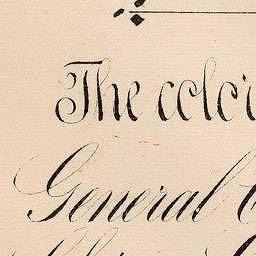 The color
General